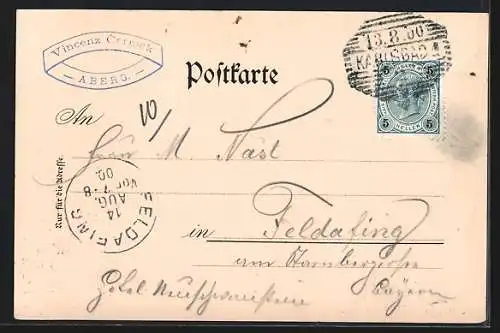 Vincenz Cerniek
ABERG.
13.8.00
KARLSBAD 4
Postkarte
5 HELLER 5
An
Herrn M. Nast
Nur für die Adresse.
FELDAFING
14 AUG.
Vor 7-8
00.
in Feldafing
am Starnbergersee
Hotel Neuschwanstein Bayern